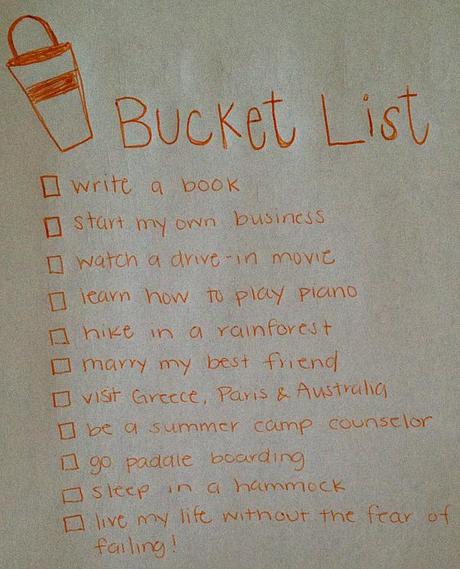 Bucket List
write a book
start my own business
watch a drive-in movie
learn how to play piano
hike in a rainforest
marry my best friend
visit Greece, Paris & Australia
be a summer camp counselor
go paddle boarding
sleep in a hammock
live my life without the fear of
failing!